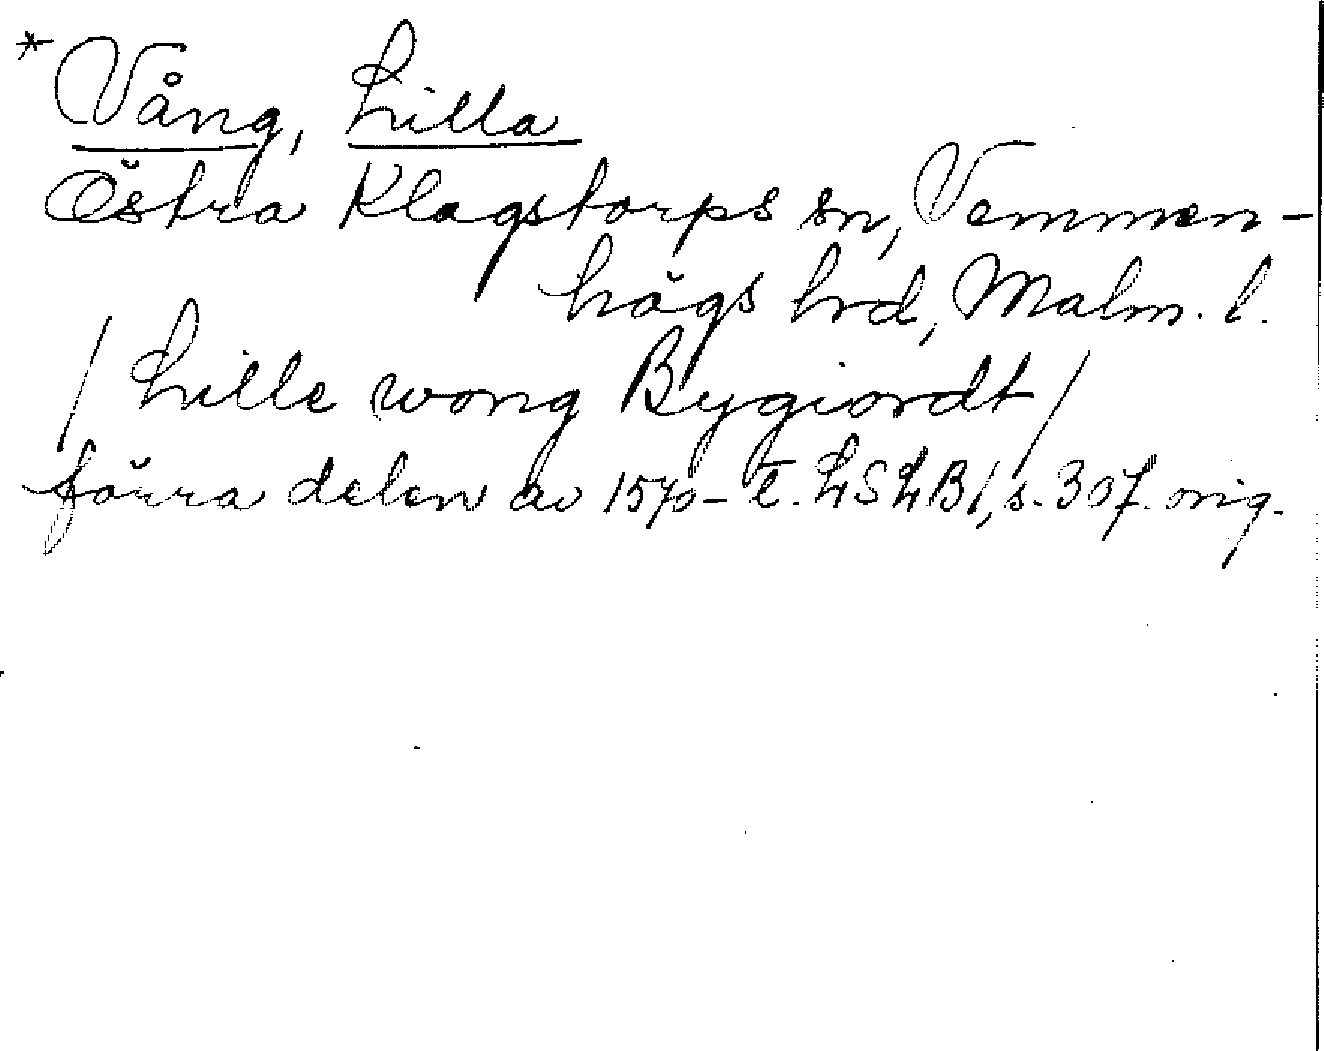 * Vång, Lilla
Östra Klagstorps sn, Vemmen-
högs hrd, Malm. l.
/ Lille wong Bygiordt /
förra delen av 1570-t. LSLB1, s. 307. orig.